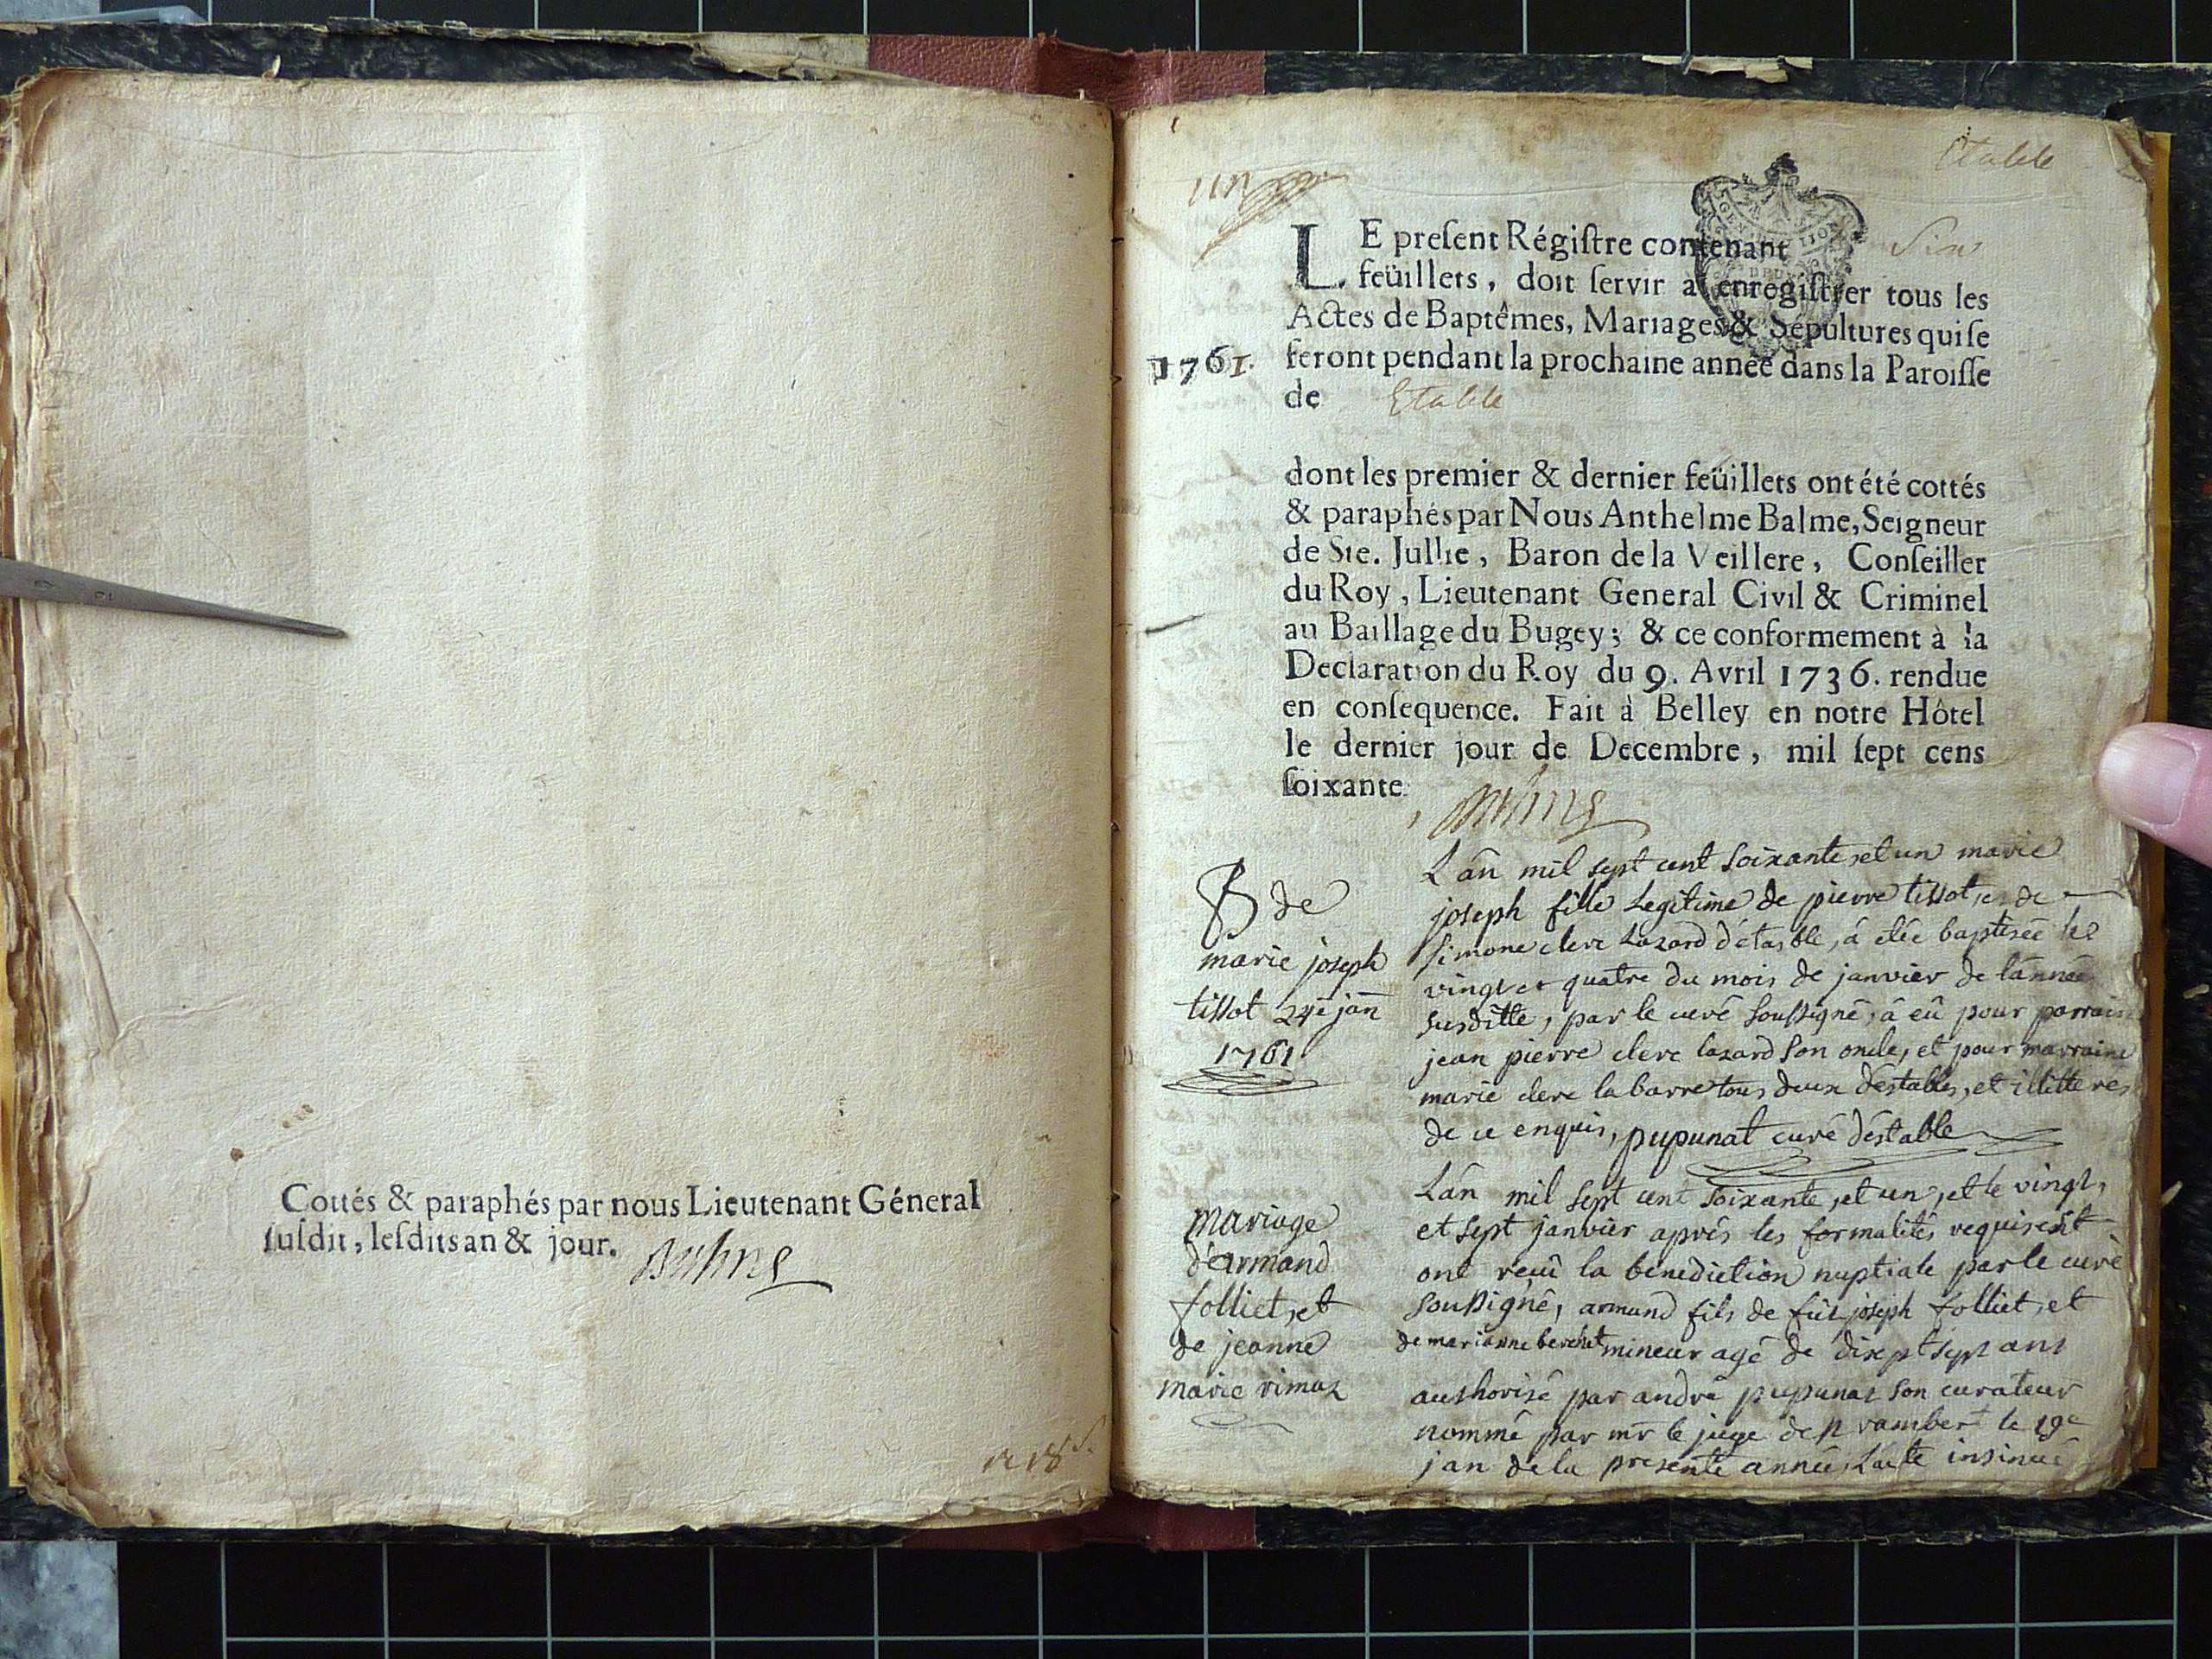 Cottés & paraphés par nous Lieutenant Géneral
ſuſdit, leſdits an & jour.
Etable
un
LE preſent Régiſtre contenant Six
feüillets, doit ſervir a enregiſtrer tous les
Actes de Baptêmes, Mariages & Sepultures qui ſe
1761. feront pendant la prochaine année dans la Paroiſſe
de Etable
dont les premier & dernier feüillets ont été cottés
& paraphés par Nous Anthelme Balme, Seigneur
de Ste. Jullie, Baron de la Veillere, Conſeiller
du Roy, Lieutenant General Civil & Criminel
au Baillage du Bugey; & ce conformement à la
Declaration du Roy du 9. Avril 1736. rendue
en conſequence. Fait à Belley en notre Hôtel
le dernier jour de Decembre, mil ſept cens
ſoixante
B de
marie joseph
tissot 24e jan
1761
L'an mil sept cent soixante, et un marie
joseph fille Legitime de pierre tissot, et de
simone clerc lazard d'étable, á etée baptisée le
vingt et quatre du mois de janvier de l'année
susditte, par le curé soussigné, á eû pour parrain
jean pierre clerc lazard son oncle, et pour marraine
marie clerc labarre tous deux d'estables, et illitteres
de ce enquis, pupunat curé d'estable
mariage
d'armand
folliet, et
de jeanne
marie rimaz
L'an mil sept cent soixante, et un, et le vingt,
et sept janvier aprés les formalités requises
ont reçu la benediction nuptiale par le curé
soussigné, armand fils de fût joseph folliet, et
de marianne berchet mineur agé de sept ans
authorisé par andré pupunat son curateur
nommé par mr le juge de rambert le 19e
jan de la presente année, L'acte insinué